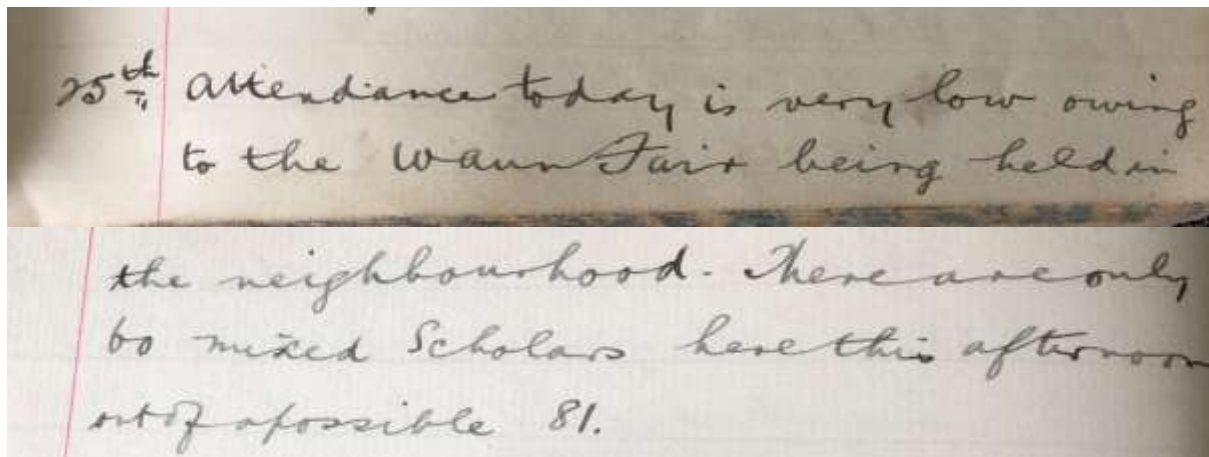 25th Attendance today is very low owing
to the Waun Fair being held in
the neighbourhood. There are only
60 mixed Scholars here this afternoon
out of a possible 81.